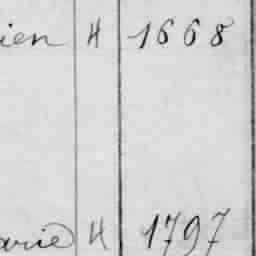 ien H 1668
arie H 1797